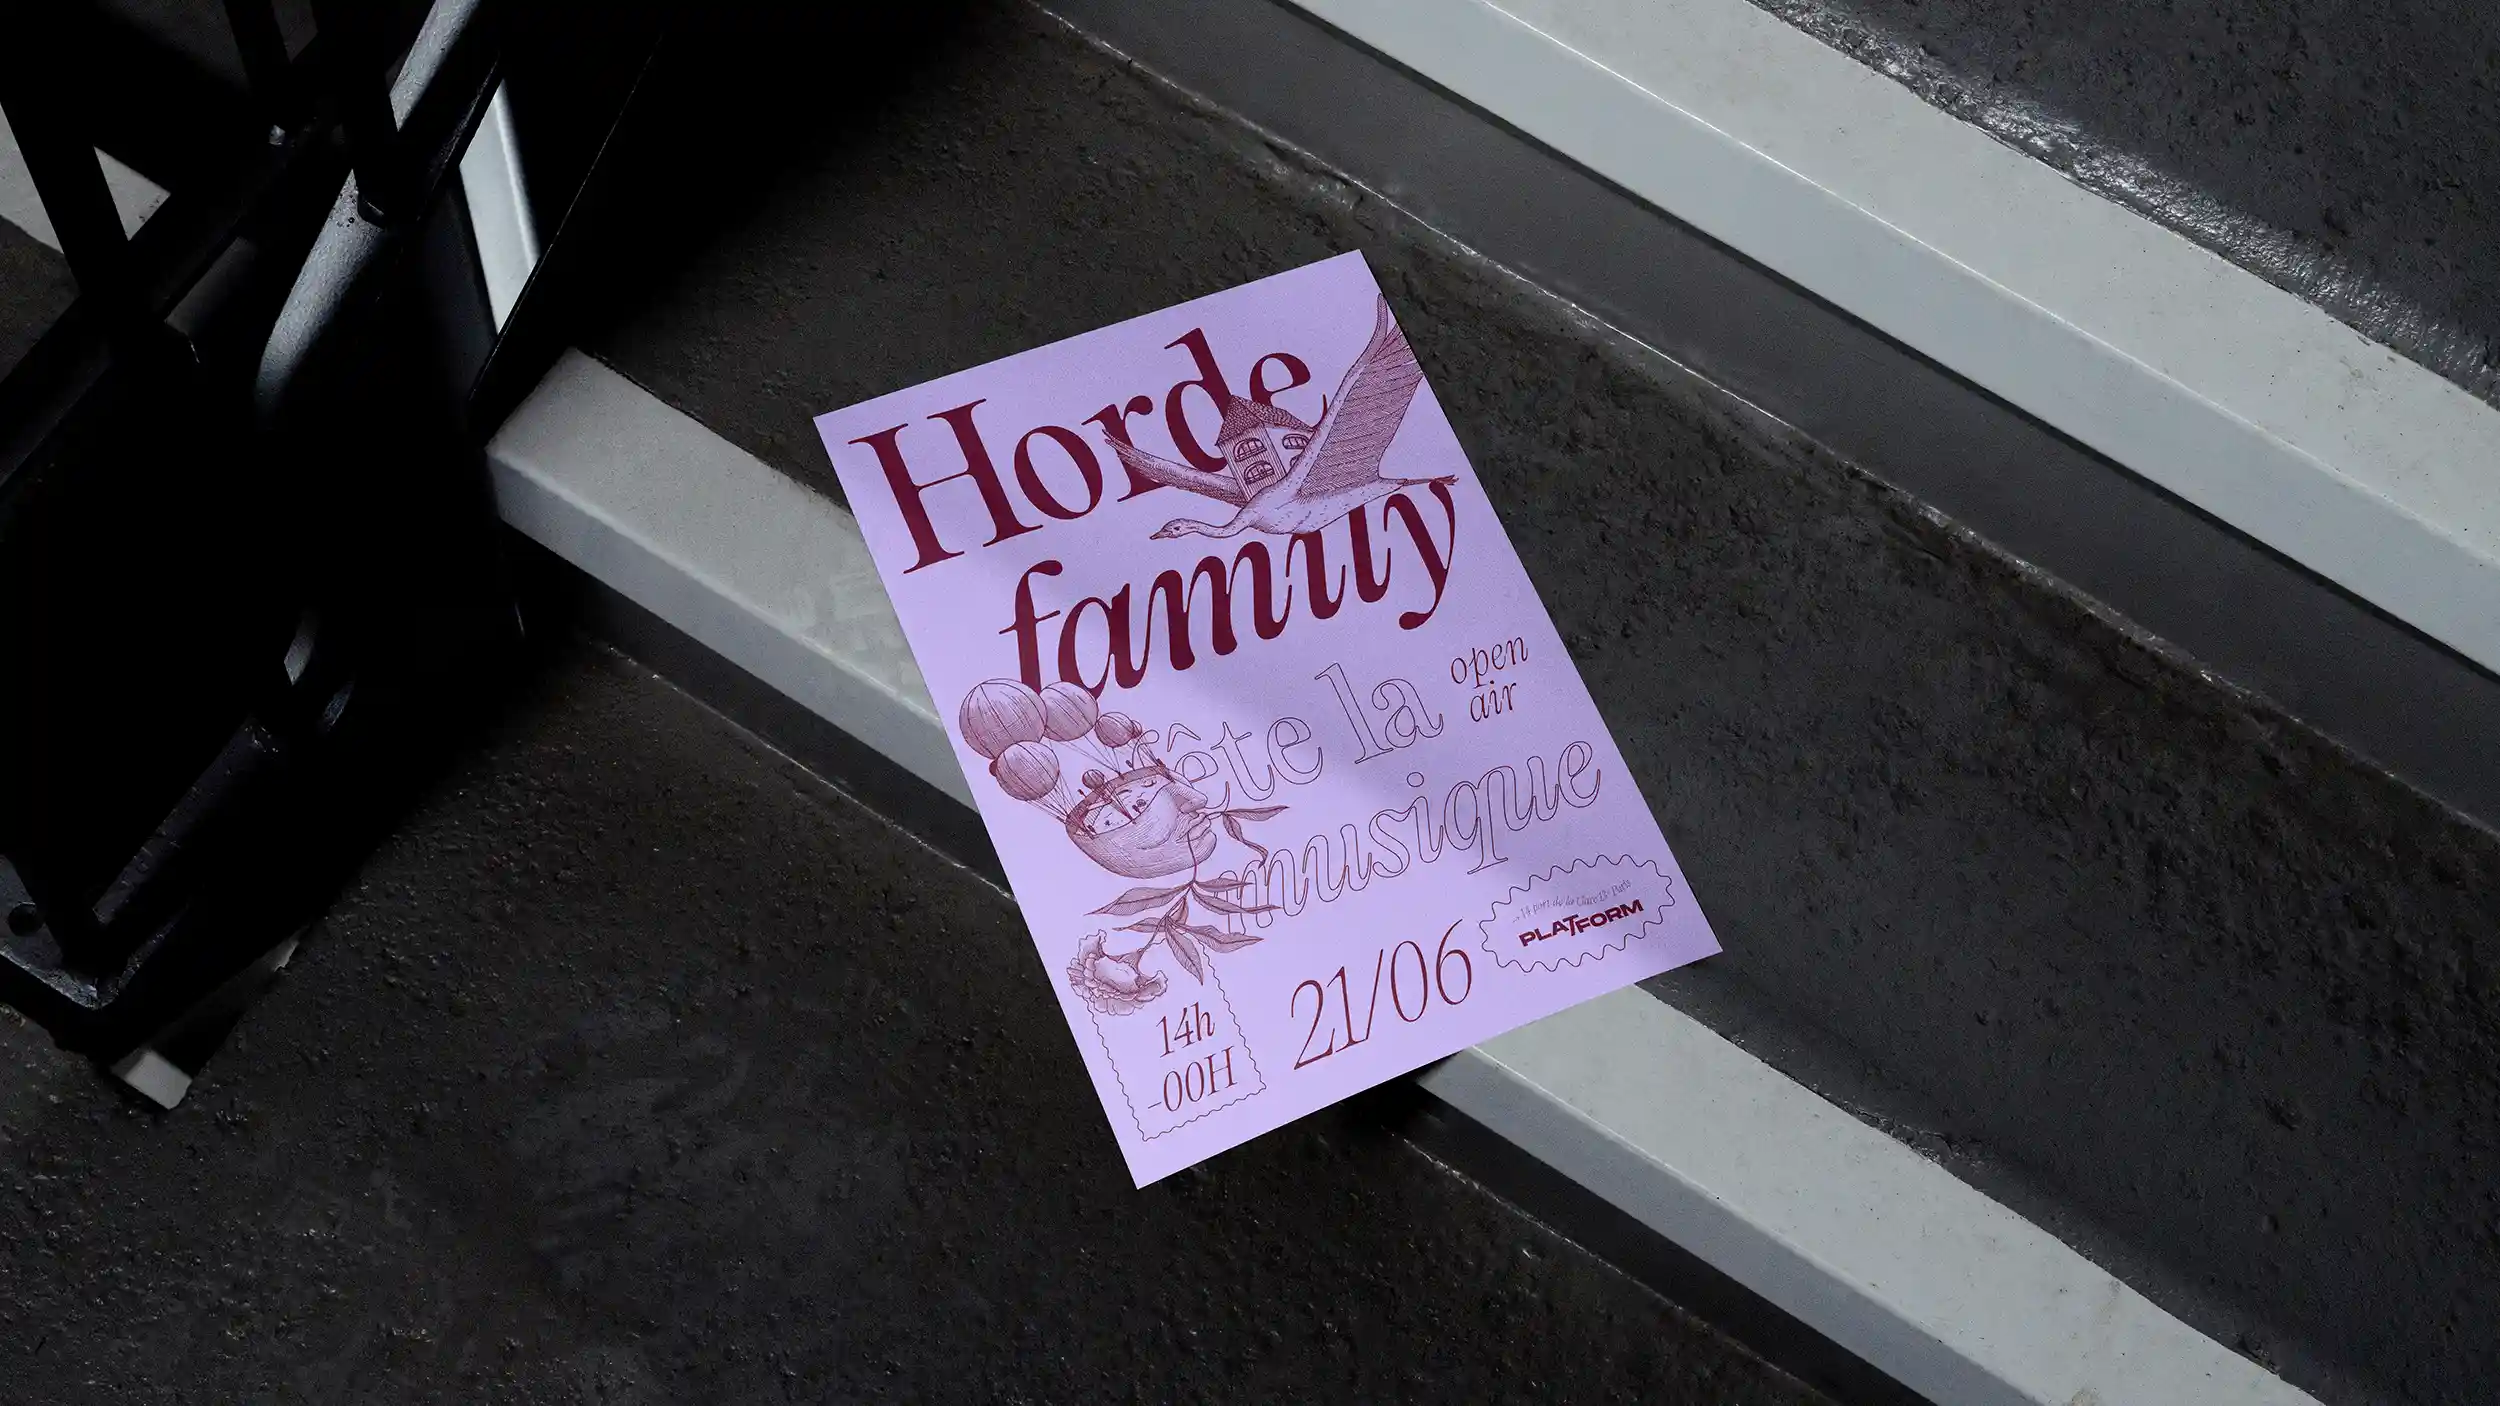 Horde
family
open
air
fête la
musique
14 port de la Gare 13e Paris
PLATFORM
21/06
14h
-00H